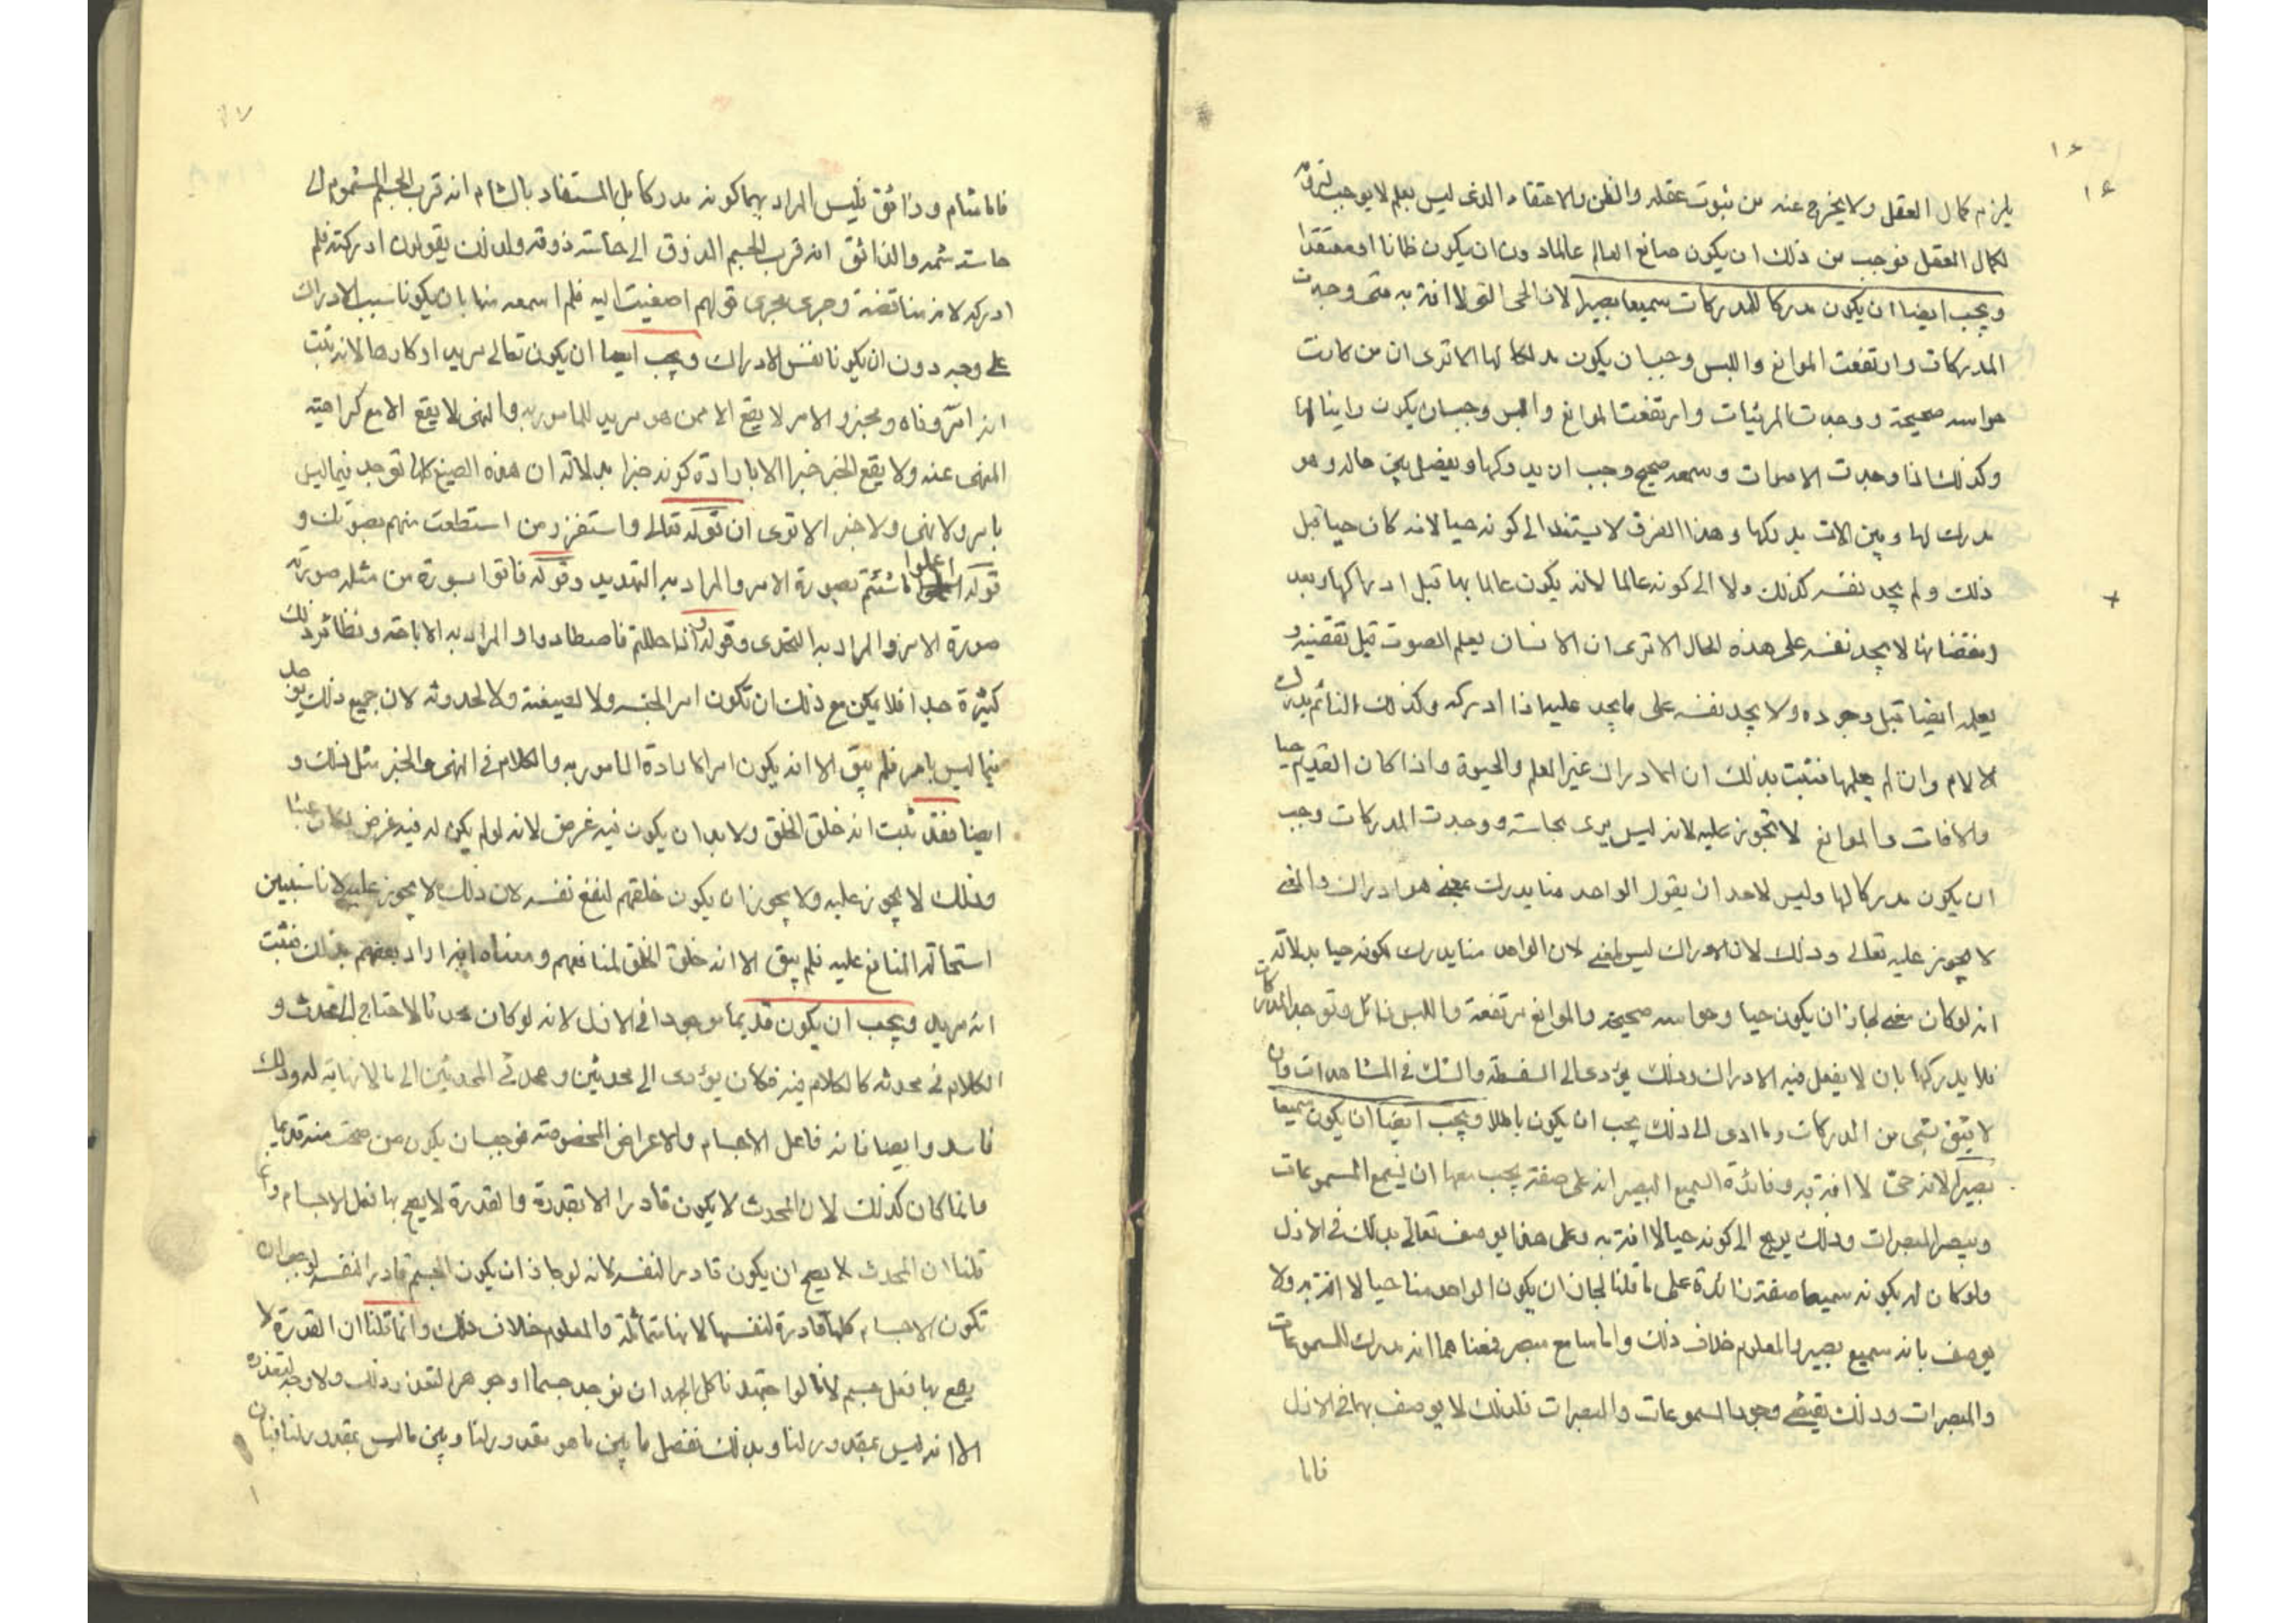 ١٦
١٦
يلزم كمال العقل ولا يخرج عنه من ثبوت عقله والظن والاعتقاد الذى ليس بعلم لا يوجب
لكمال العقل فوجب من ذلك ان يكون صانع العالم عالما دون ان يكون ظانا او معتقدا
ويجب ايضا ان يكون مدركا للمدركات سميعا بصيرا لان الحى التى لا افة به متى وجدت
المدركات وارتفعت الموانع واللبس وجب ان يكون مدركا لها الا ترى ان من كانت
حواسه صحيحة ووجدت المرئيات وارتفعت الموانع واللبس وجب ان يكون رايئا لها
وكذلك اذا وجدت الاصوات وسمعه صحيح وجب ان يدركها ويفصل بين حاله وهو
مدرك لها وبين الات يدركها وهذا الفرق لا يستند الى كونه حيا لانه كان حيا قبل
ذلك ولم يجد نفسه كذلك ولا الى كونه عالما لانه يكون عالما بها قبل ادراكها وبعد
انقضائها لا يجد نفسه على هذه الحال الا ترى ان الانسان يعلم الصوت قبل تقضيه و
يعلمه ايضا قبل وجوده ولا يجد نفسه على ما يجد عليها اذا ادركه وكذلك النائم يدرك
الالام وان لم يعلمها فثبت بذلك ان الادراك غير العلم والحيوة واذا كان القديم حيا
والافات والموانع لا تجوز عليه لانه ليس يرى بحاسة ووجدت المدركات وجب
ان يكون مدركا لها وليس لاحد ان يقول الواحد منا يدرك بمعنى هو ادراك والمعنى
لا يجوز عليه تعالى وذلك لان الادراك ليس لمعنى لان الواحد منا يدرك لكونه حيا بدلالة
انه لو كان معنى لجاز ان يكون حيا وحواسه صحيحة والموانع مرتفعة واللبس زائل وتوجد المدركات
فلا يدركها بان لا يفعل فيه الادراك وذلك يؤدى الى السفسطة والشك فى المشاهدات وان
لا يثق بشئ من المدركات وما ادى الى ذلك يجب ان يكون باطلا ويجب ايضا ان يكون سميعا
بصيرا لانه حى لا افة به وفائدة السميع البصير انه على صفة يجب معها ان يسمع المسموعات
ويبصر المبصرات وذلك يرجع الى كونه حيا لا افة به وعلى هذا يوصف تعالى بذلك فى الازل
ولو كان له بكونه سميعا صفة زائدة على ما قلنا لجاز ان يكون الواحد منا حيا لا افة به ولا
يوصف بانه سميع بصير والمعلوم خلاف ذلك واما سامع مبصر فمعناهما انه مدرك للمسموعات
والمبصرات وذلك يقتضى وجود المسموعات والمبصرات فلذلك لا يوصف بهما فى الازل
فاما
١٧
فاما شام وذائق فليس المراد بهما كونه مدركا بل المستفاد بالشام انه قرب الجسم المشموم الى
حاسة شمه والذائق انه قرب الجسم المذوق الى حاسة ذوقه ولذلك يقولون ادركته فلم
ادركه لانه مناقضة وجرى مجرى قولهم اصغيت اليه فلم اسمعه منها بان يكونا سبب الادراك
على وجه دون ان يكونا نفس الادراك ويجب ايضا ان يكون تعالى مريدا وكارها لانه ثبت
انه امر وناه ومخبر والامر لا يقع الا ممن هو مريد للمامور به والنهى لا يقع الا مع كراهيته
المنهى عنه ولا يقع الخبر خبرا الا بارادة كونه خبرا بدلالة ان هذه الصيغ كلها توجد فيما ليس
بامر ولا نهى ولا خبر الا ترى ان قوله تعالى واستفزز من استطعت منهم بصوتك و
قوله اعملوا ما شئتم بصورة الامر والمراد به التهديد وقوله فاتوا بسورة من مثله صورته
صورة الامر والمراد به التحدى وقوله واذا حللتم فاصطادوا والمراد به الاباحة ونظائر ذلك
كثيرة جدا فلا يمكن مع ذلك ان تكون امرا لجنسه ولا لصيغته ولا لحدوثه لان جميع ذلك يوجد
فيما ليس بامر فلم يبق الا انه يكون امرا لارادة المامور به والكلام فى النهى والخبر مثل ذلك و
ايضا فقد ثبت انه خلق الخلق ولا بد ان يكون فيه غرض لانه لو لم يكن له فيه غرض لكان عبثا
وذلك لا يجوز عليه ولا يجوز ان يكون خلقهم لنفع نفسه لان ذلك لا يجوز عليه لانا سنبين
استحالة المنافع عليه فلم يبق الا انه خلق الخلق لمنافعهم ومعناه انه اراد بعضهم بذلك فثبت
انه مريد ويجب ان يكون قديما موجودا فى الازل لانه لو كان محدثا لاحتاج الى محدث و
الكلام فى محدثه كالكلام فيه فكان يؤدى الى محدثين ومحدثى المحدثين الى ما لا نهاية له وذلك
فاسد وايضا فانه فاعل الاجسام والاعراض المخصوصة فوجب ان يكون من صحت منه قديما
وانما كان كذلك لان المحدث لا يكون قادرا الا بقدرة والقدرة لا يصح بها فعل الاجسام وانما
قلنا ان المحدث لا يصح ان يكون قادرا لنفسه لانه لو جاز ان يكون الجسم قادرا لنفسه لوجب ان
تكون الاجسام كلها قادرة لنفسها لانها متماثلة والمعلوم خلاف ذلك وانما قلنا ان القدرة لا
يصح بها فعل جسم لانا لو اجتهدنا كل الجهد ان نوجد جسما او جوهرا لتعذر ذلك ولا وجه لتعذره
الا انه ليس بمقدور لنا وبذلك نفصل ما بين ما هو مقدور لنا وبين ما ليس بمقدور لنا فبان